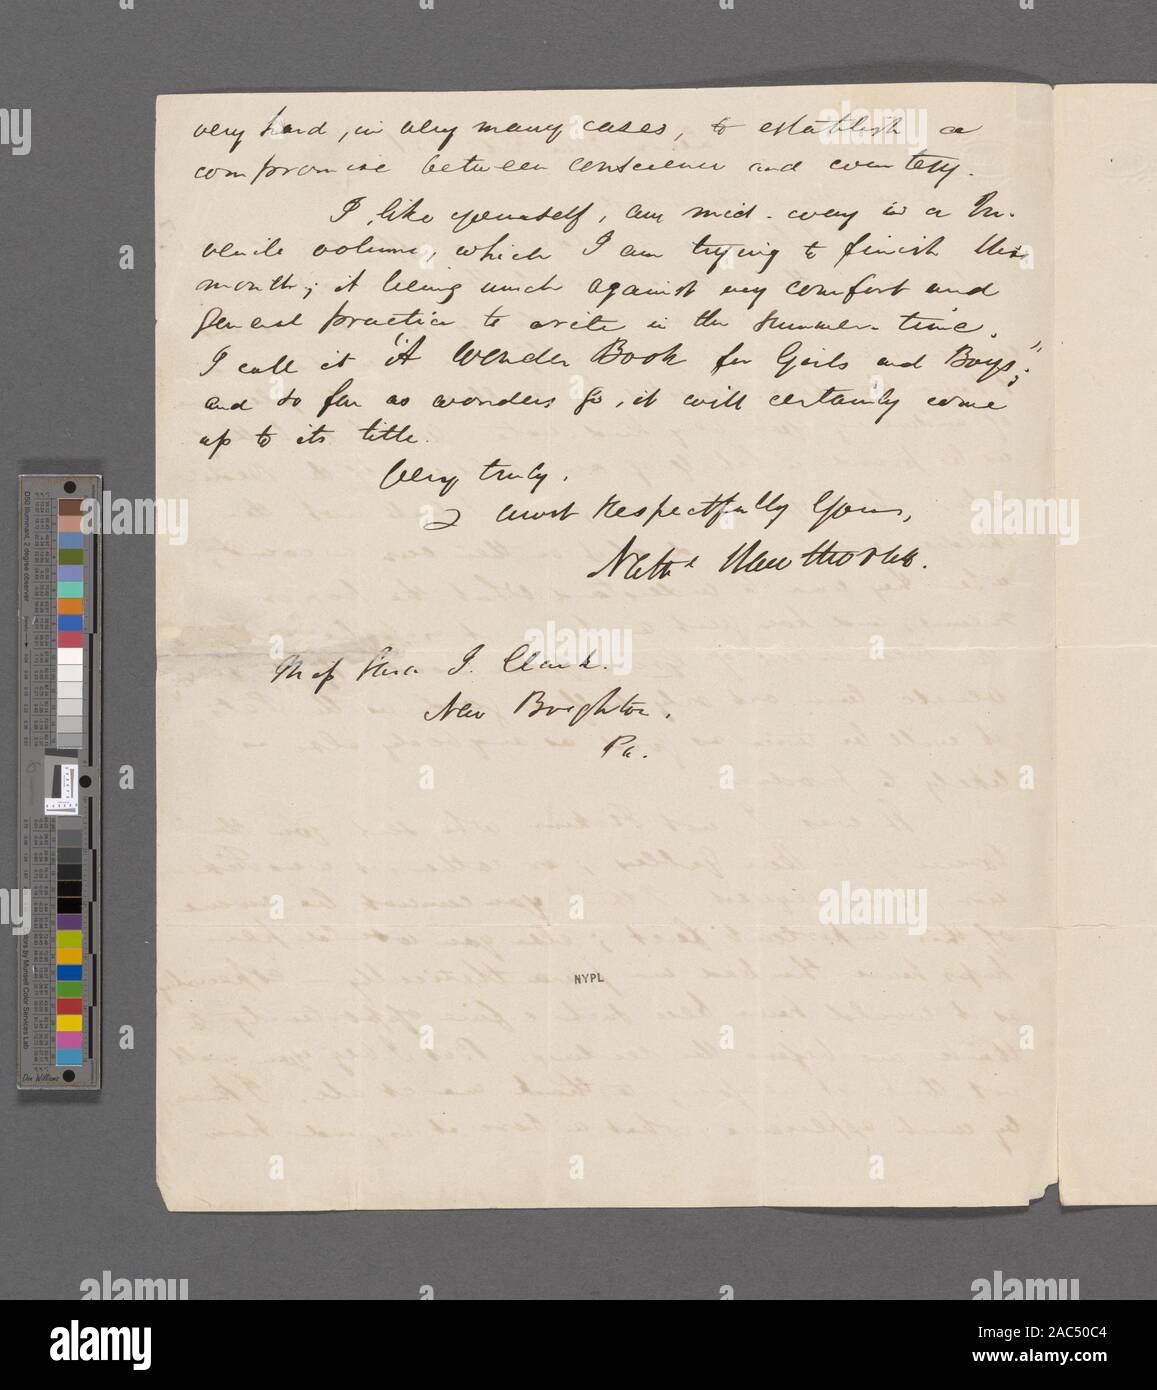 very hard, in very many cases, to establish a
compromise between conscience and courtesy.
I, like yourself, am mid-way in a Ju-
venile volume, which I am trying to finish this
month; it being much against my comfort and
general practice to write in the summer-time.
I call it "A Wonder Book for Girls and Boys";
and so far as wonders go, it will certainly come
up to its title.
Very truly,
& most Respectfully Yours,
Nathl Hawthorne.
Miss Sara J. Clarke.
New Brighton,
Pa.
NYPL
alamy
Image ID: 2AC50C4
www.alamy.com